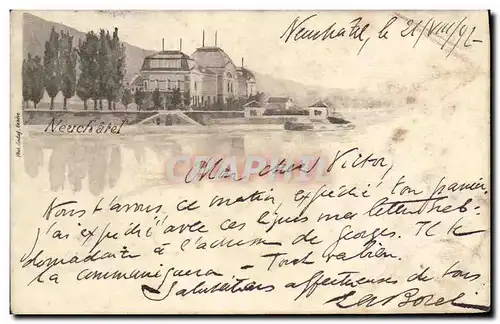 Neuchâtel, le 21/VIII/97
Neuchâtel
Mon cher Victor,
Nous t'avons, ce matin, expédié ton panier
J'ai expédié avec ces lignes ma lettre heb-
domadaire à l'adresse de Georges. Il te
la communiquera – Tout va bien.
Salutations affectueuses de tous.